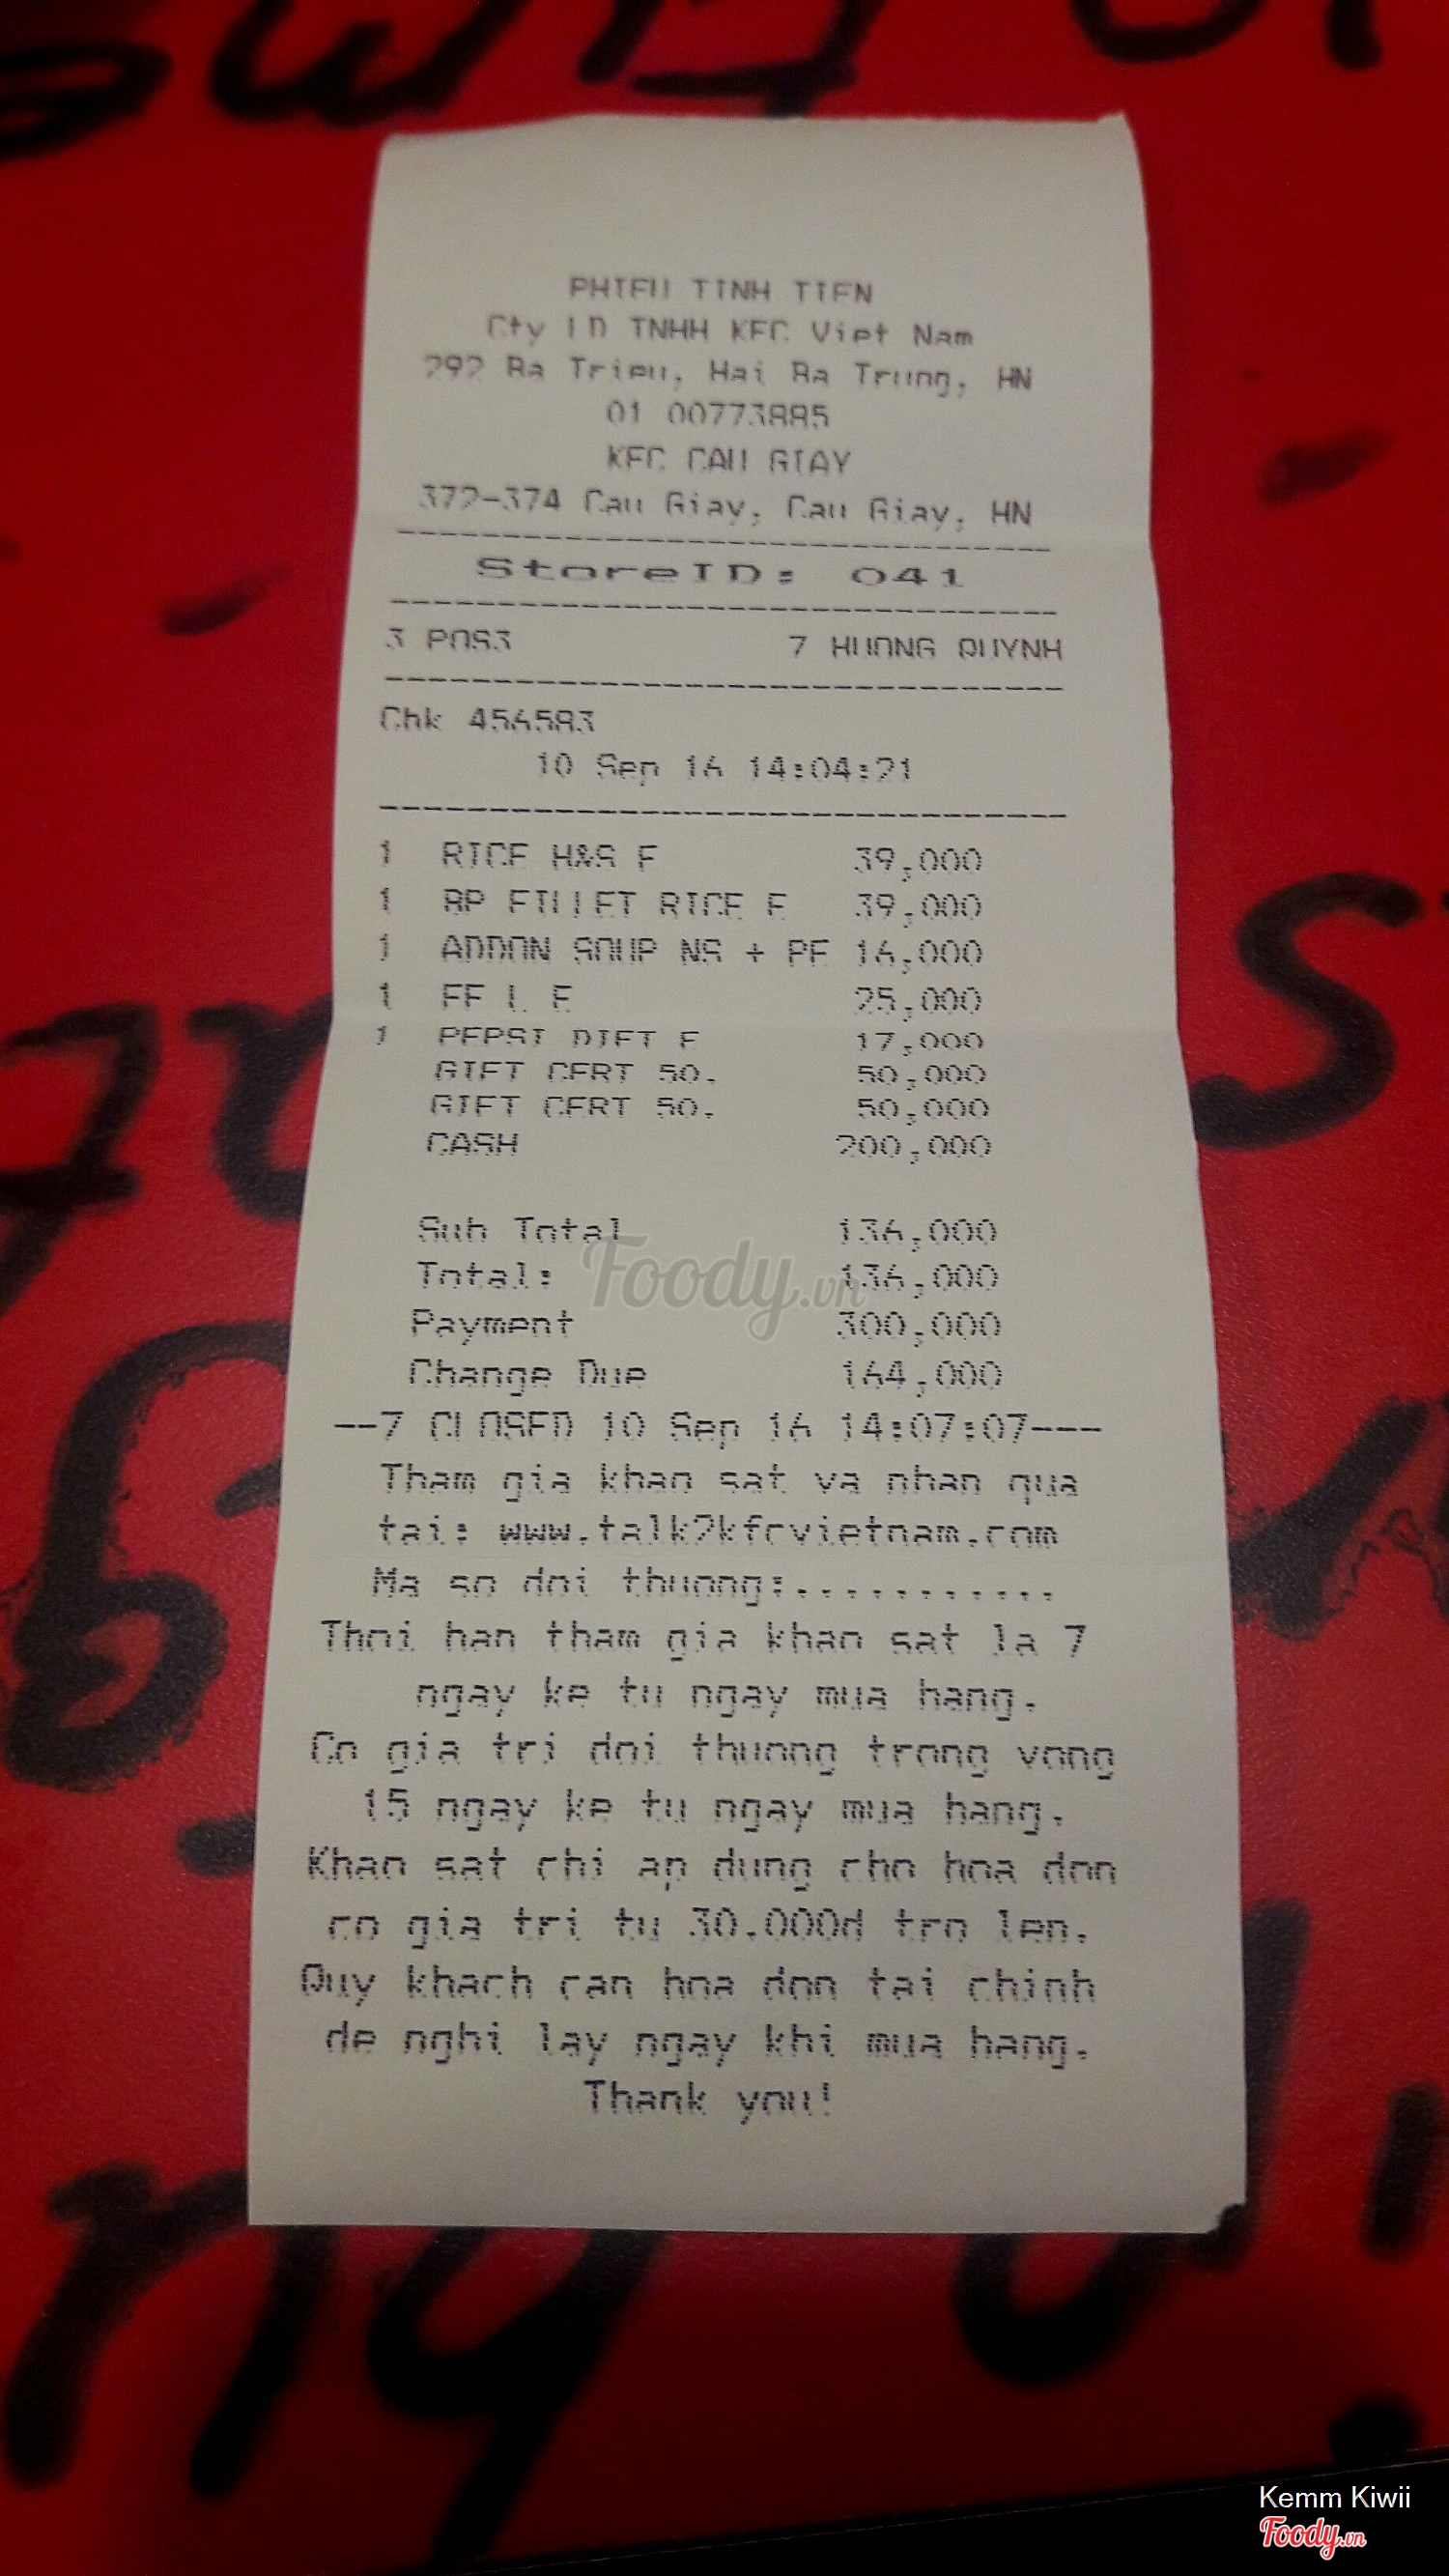 PHIEU TINH TIEN
Cty LD TNHH KFC Viet Nam
292 Ba Trieu, Hai Ba Trung, HN
01 00773885
KFC CAU GIAY
372-374 Cau Giay, Cau Giay, HN
StoreID: 041
3 POS3 7 HUONG QUYNH
Chk 456583
10 Sep 16 14:04:21
1 RICE H&S E 39,000
1 BP FILLET RICE E 39,000
1 ADDON SOUP NS + PE 16,000
1 FF L E 25,000
1 PEPSI DIET E 17,000
GIFT CERT 50. 50,000
GIFT CERT 50. 50,000
CASH 200,000
Sub Total 136,000
Total: 136,000
Foody.vn
Payment 300,000
Change Due 164,000
--7 CLOSED 10 Sep 16 14:07:07---
Tham gia khao sat va nhan qua
tai: www.talk2kfcvietnam.com
Ma so doi thuong:...........
Thoi han tham gia khao sat la 7
ngay ke tu ngay mua hang.
Co gia tri doi thuong trong vong
15 ngay ke tu ngay mua hang.
Khao sat chi ap dung cho hoa don
co gia tri tu 30.000d tro len.
Quy khach can hoa don tai chinh
de nghi lay ngay khi mua hang.
Thank you!
Kemm Kiwii
Foody.vn